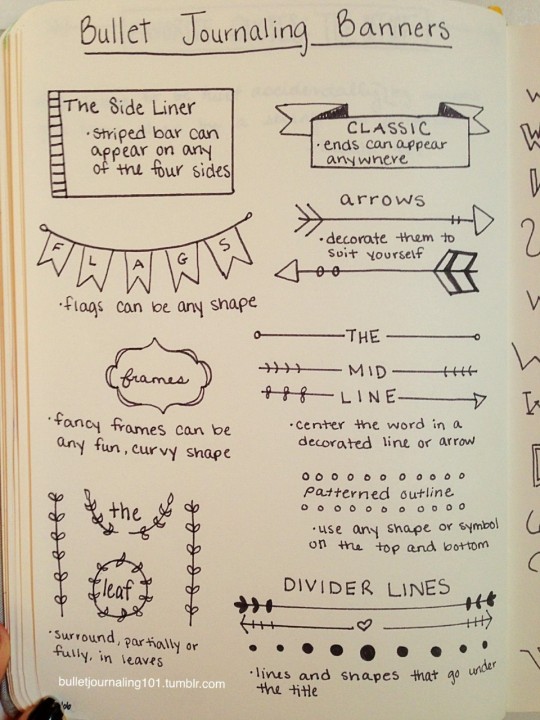 Bullet Journaling Banners
The Side Liner
•striped bar can
appear on any
of the four sides
CLASSIC
•ends can appear
anywhere
arrows
•decorate them to
suit yourself
FLAGS
•flags can be any shape
THE
MID
LINE
•center the word in a
decorated line or arrow
frames
•fancy frames can be
any fun, curvy shape
patterned outline
•use any shape or symbol
on the top and bottom
the
leaf
•surround, partially or
fully, in leaves
DIVIDER LINES
•lines and shapes that go under
the title
bulletjournaling101.tumblr.com